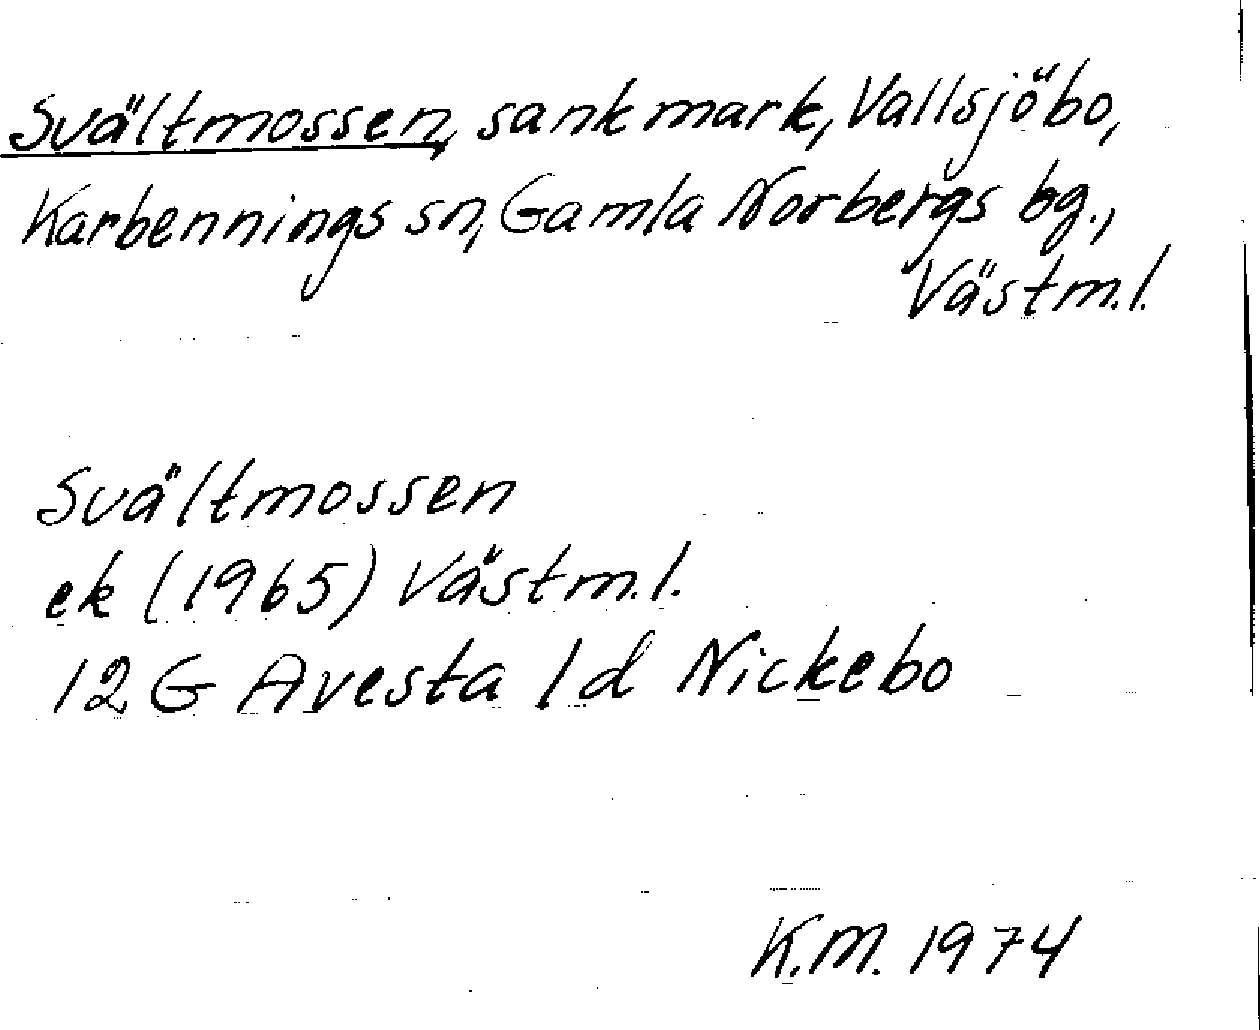 Svältmossen, sank mark, Vallsjöbo,
Karbennings sn, Gamla Norbergs bg.,
Västm.l.
Svältmossen
ek (1965) Västm.l.
12 G Avesta 1 d Nickebo
K.M. 1974